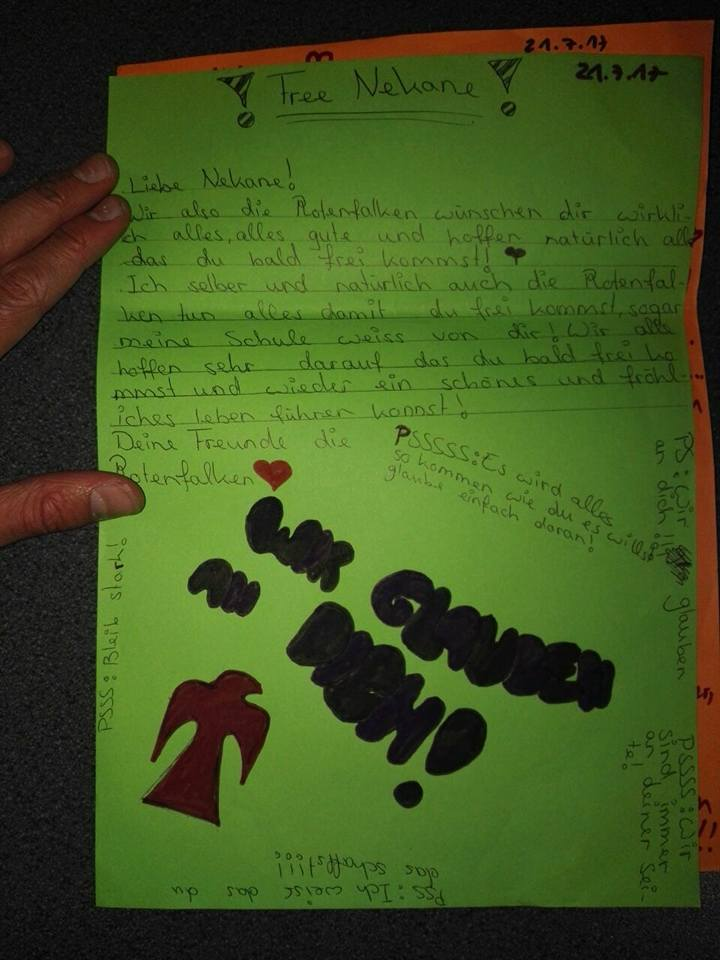 21.7.17
21.7.17
! Free Nekane !
Liebe Nekane!
Wir also die Rotenfalken wünschen dir wirkli-
ch alles, alles gute und hoffen natürlich alle
das du bald frei kommst!
Ich selber und natürlich auch die Rotenfal-
ken tun alles damit du frei kommst, sogar
meine Schule weiss von dir! Wir alle
hoffen sehr darauf das du bald frei ko
mmst und wieder ein schönes und fröhl-
iches leben führen konnst!
Deine Freunde die
Rotenfalken
PSSSSS: Es wird alles
so kommen wie du es willst
glaube einfach daran!
PS: Wir glauben
an dich!!!
PSSSS: Wir
sind immer
an deiner Sei-
te!
PSS: Ich weiss das du
das schaffst!!!
PSSS: Bleib stark!
Wir
Glauben
an
Dich!